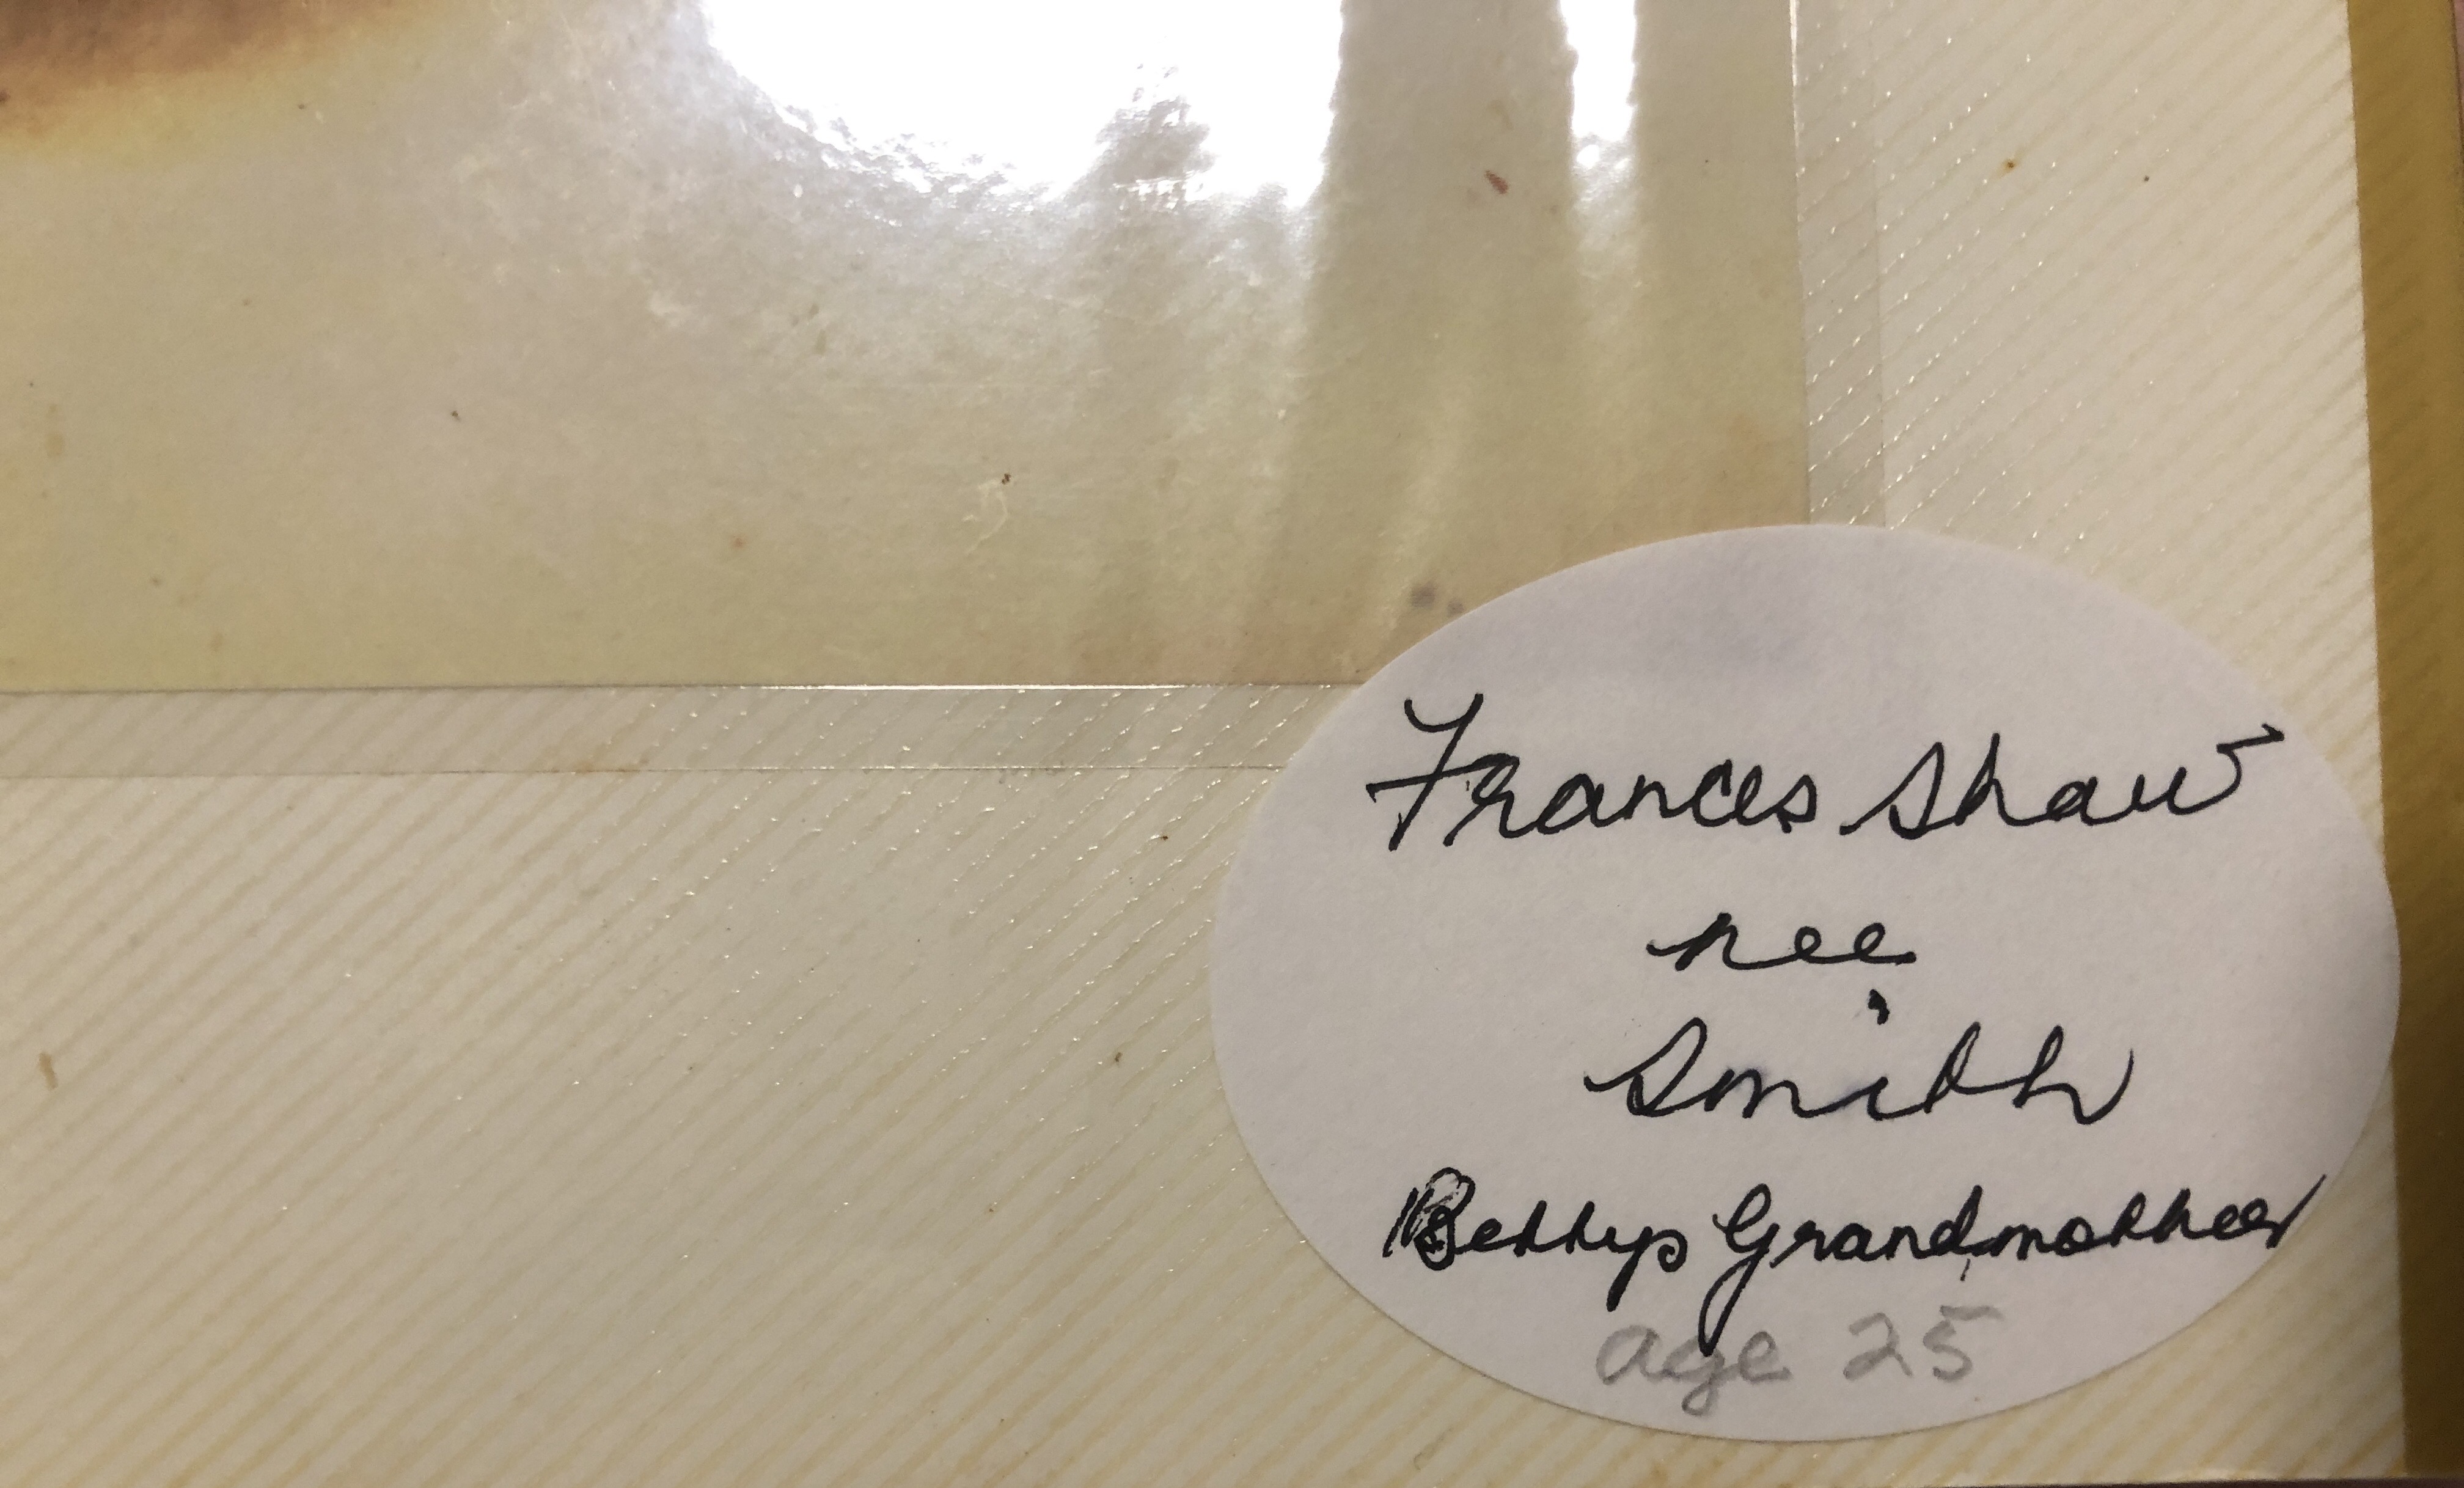 Frances Shaw
nee
Smith
Bettys Grandmother
age 25